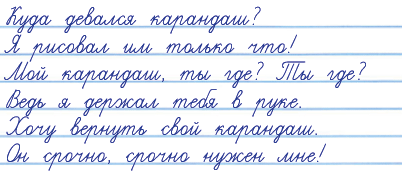 Куда девался карандаш?
Я рисовал им только что!
Мой карандаш, ты где? Ты где?
Ведь я держал тебя в руке.
Хочу вернуть свой карандаш.
Он срочно, срочно нужен мне!